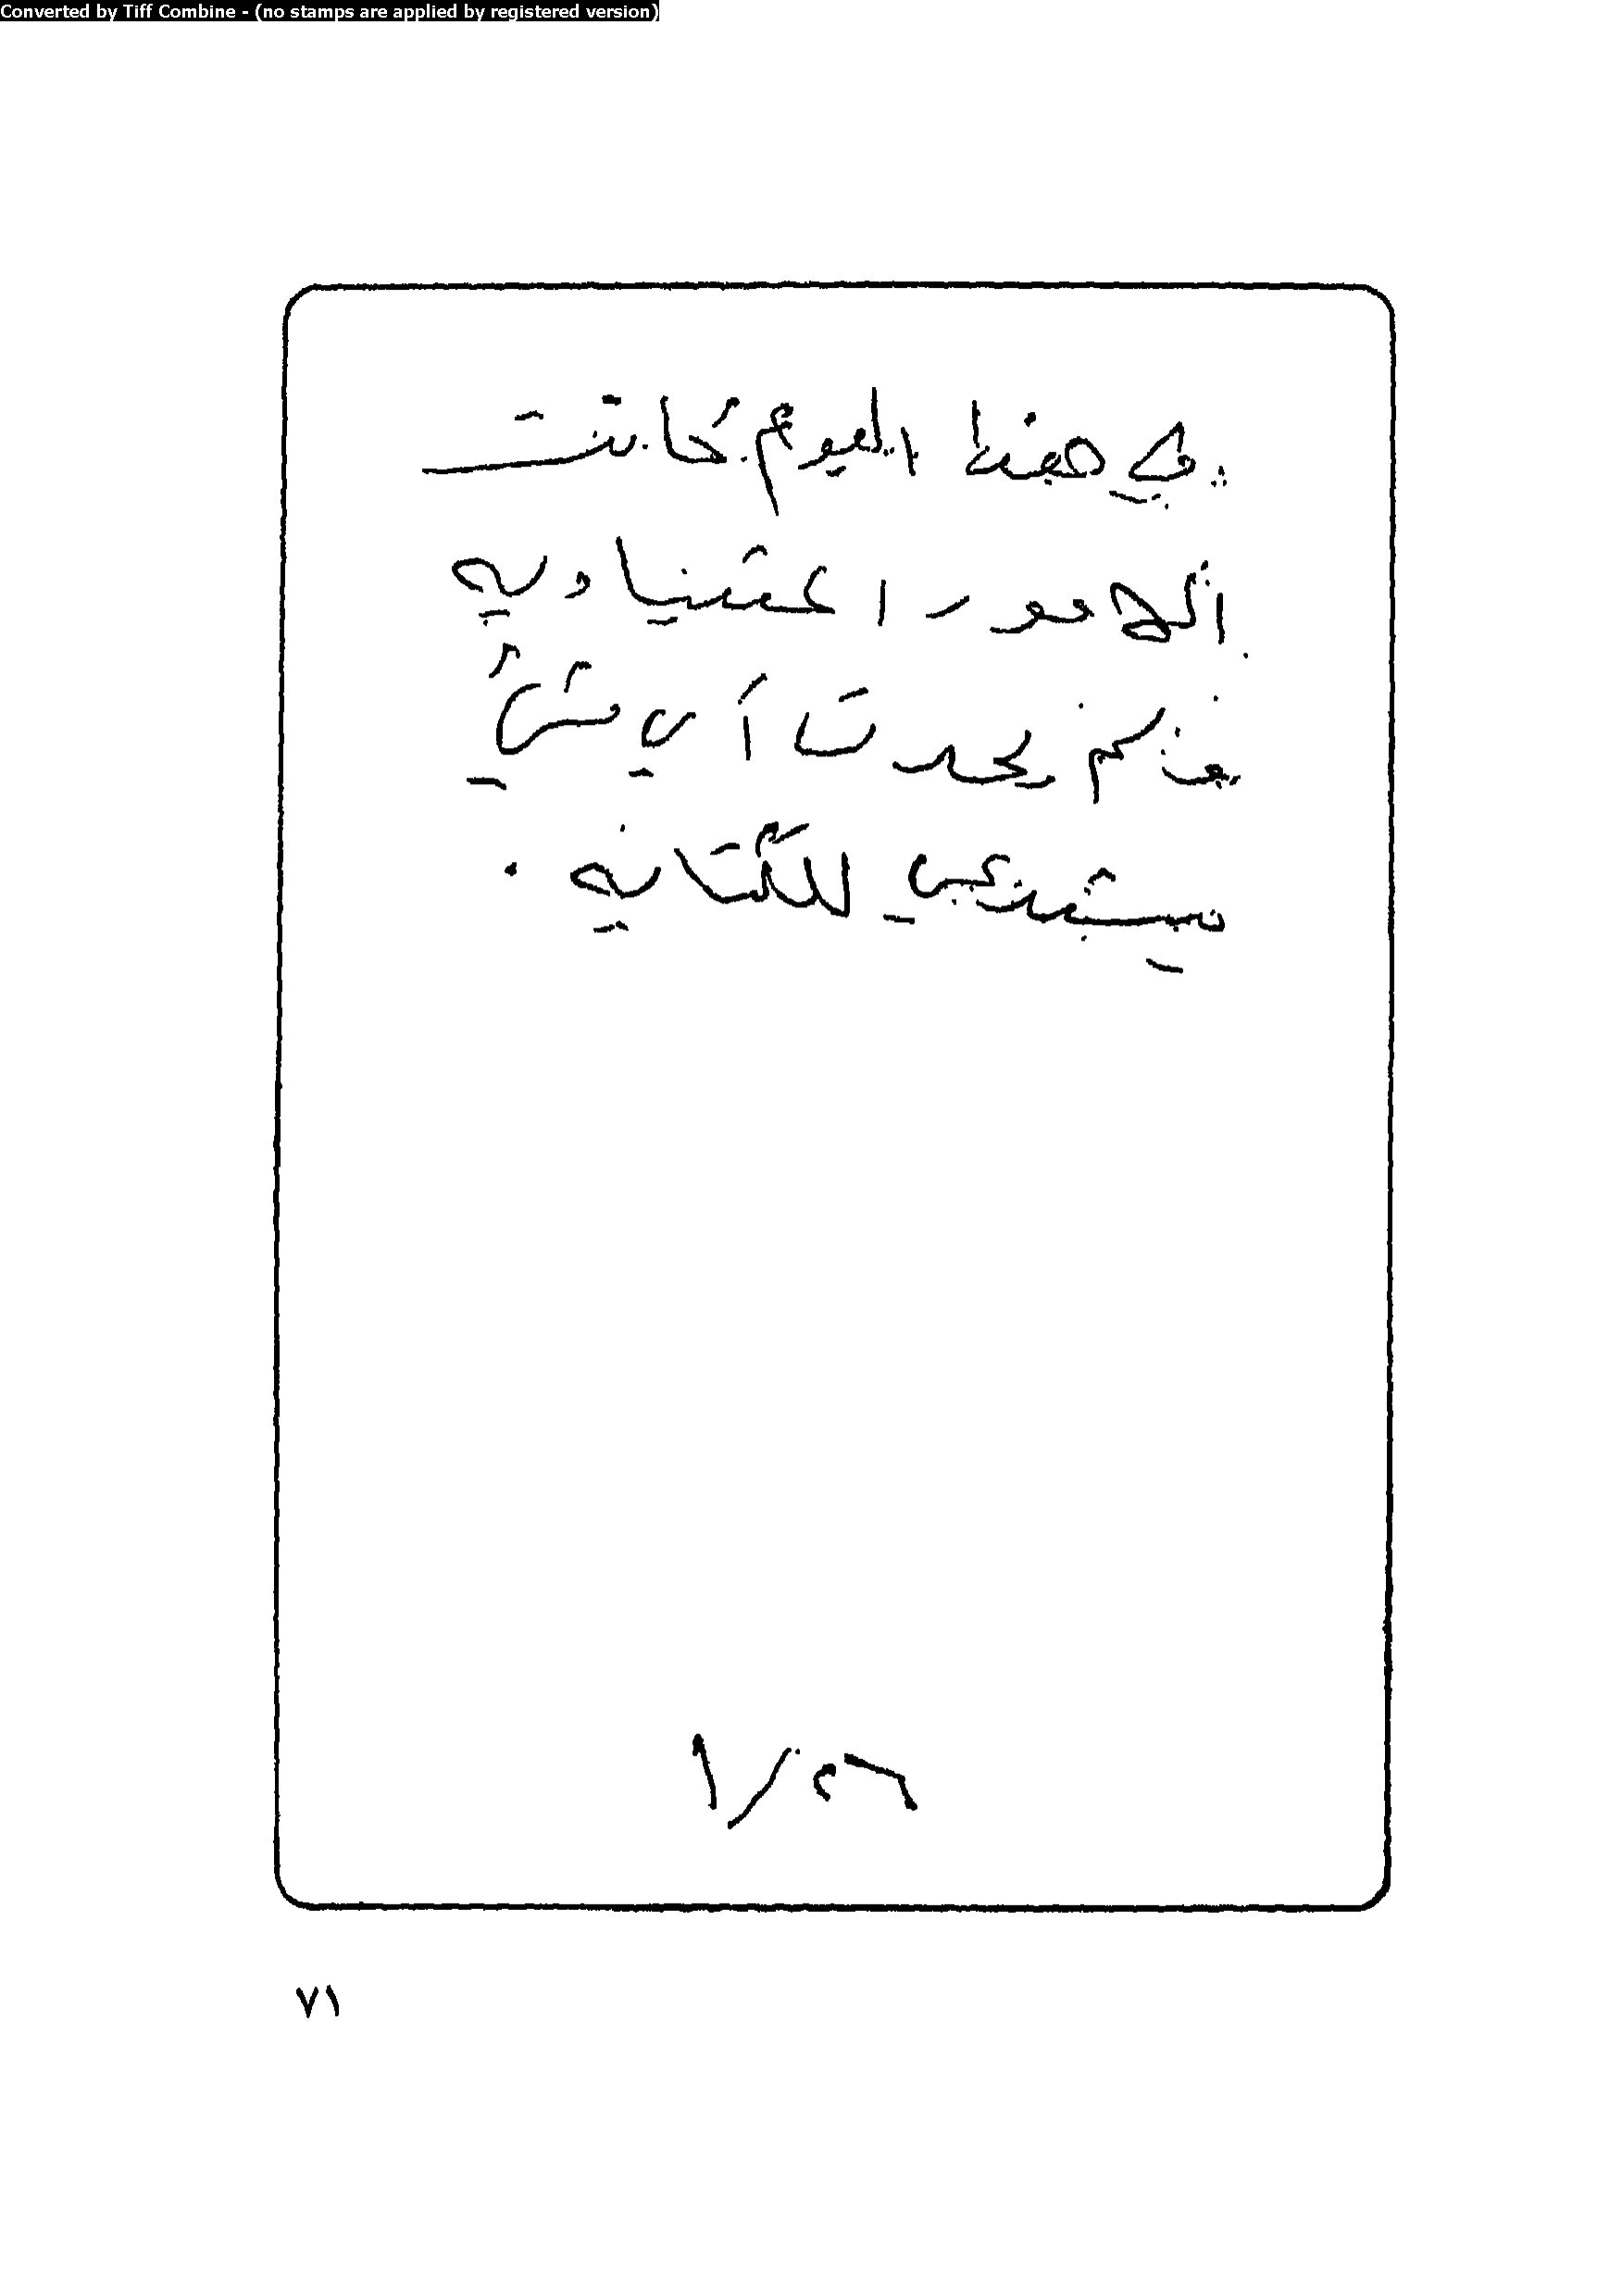 Converted by Tiff Combine - (no stamps are applied by registered version)
في هذا اليوم كانت
الامور اعتياديه
فلم يحدث أي شيء
يستدعي للكتابه .
٢٦/١
٧١